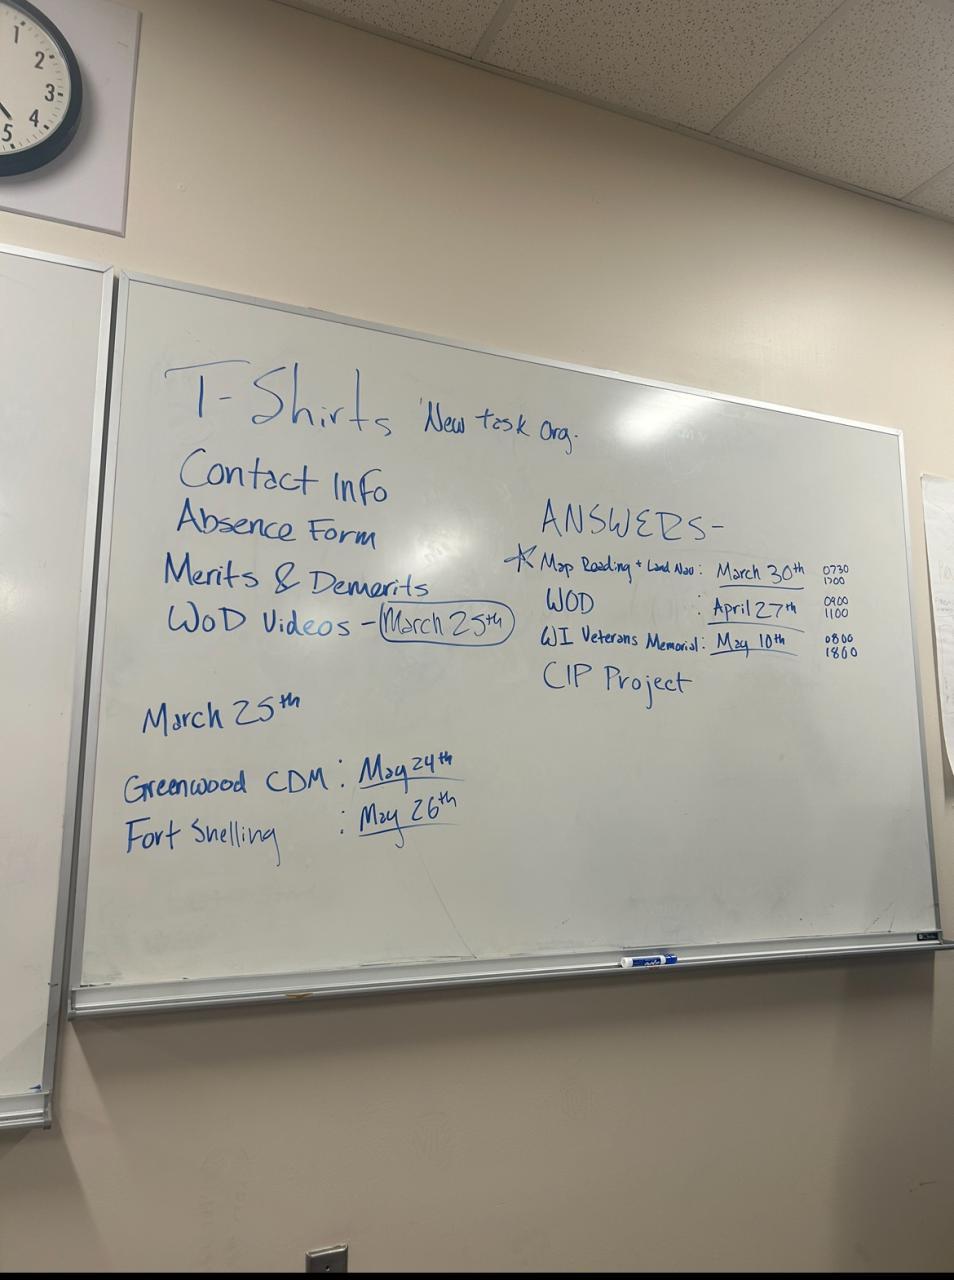 1
2
3
4
5
T-Shirts New task org.
Contact Info
Absence Form
Merits & Demerits
WOD Videos - March 25th
March 25th
Greenwood CDM : May 24th
Fort Snelling : May 26th
ANSWERS-
Map Reading + Land Nav : March 30th 0730 1700
WOD : April 27th 0900 1100
WI Veterans Memorial : May 10th 0800 1800
CIP Project